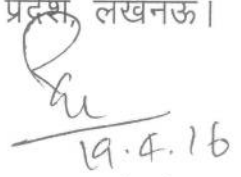 प्रदेश, लखनऊ।
19.4.16